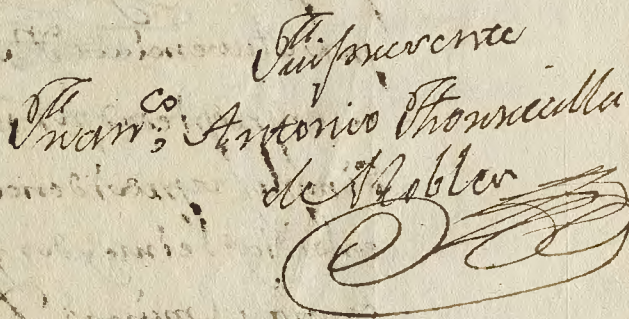 Fui presente
Fran.co Antonio Thorrecilla
de Robles